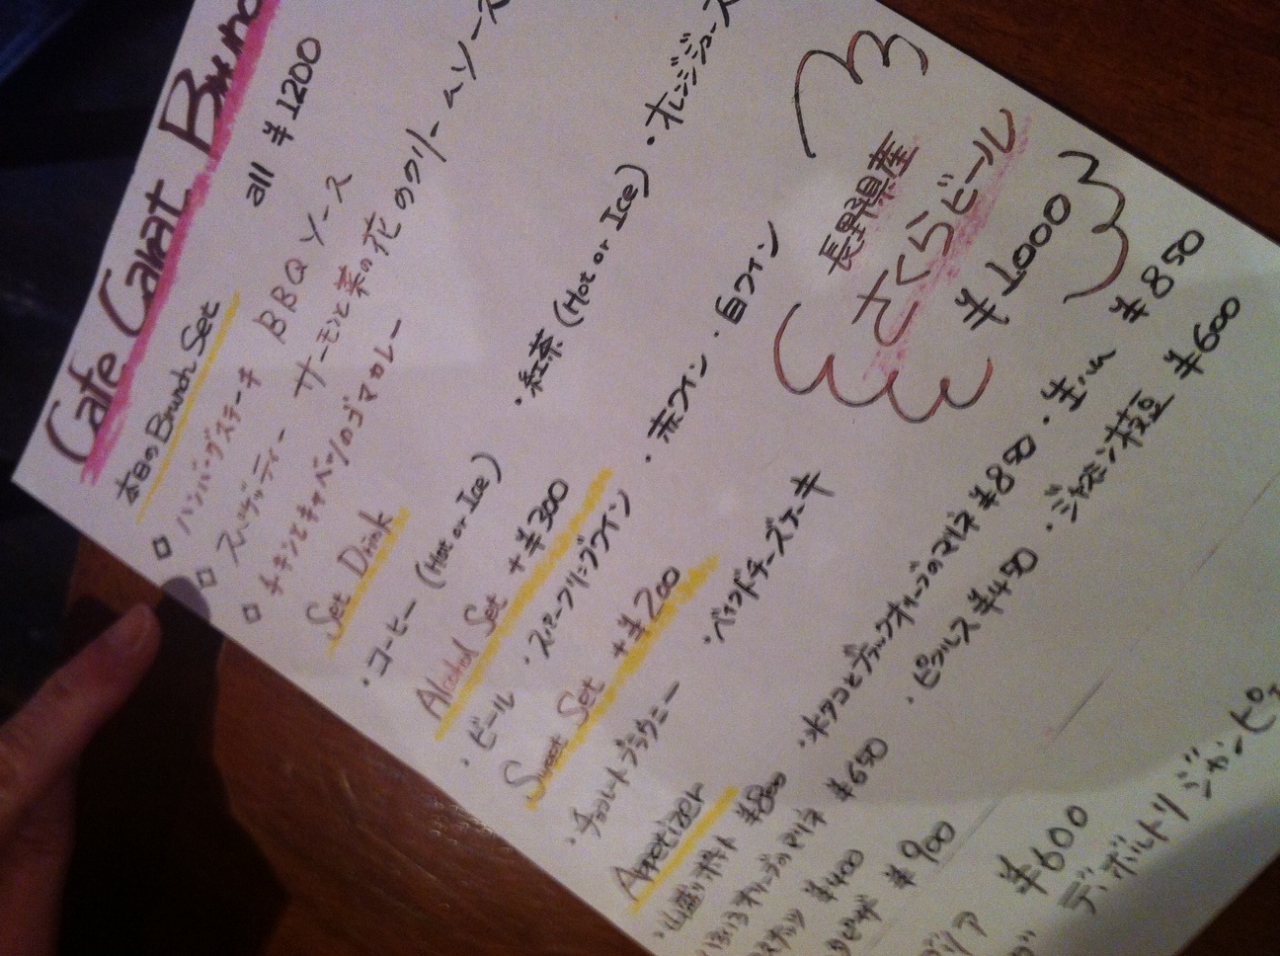 Cafe Carat Brunch
本日のBrunch Set all ¥1200
◇ ハンバーグステーキ BBQソース
◇ スパゲッティー サーモンと菜の花のクリームソース
◇ チキンとキャベツのゴマカレー
Set Drink
・コーヒー (Hot or Ice) ・紅茶 (Hot or Ice) ・オレンジジュース
Alcohol Set +¥300
・ビール ・スパークリングワイン ・赤ワイン ・白ワイン
Sweet Set +¥200
・チョコレートブラウニー ・ベイクドチーズケーキ
長野県産
さくらビール
¥1000
Appetizer
・山盛りポテト ¥800 ・水タコとブラックオリーブのマリネ ¥850 ・生ハム ¥850
いろいろオリーブのマリネ ¥650 ・ピクルス ¥450 ・ジャスミン枝豆 ¥600
ナッツ ¥400
ピザ ¥900
¥600